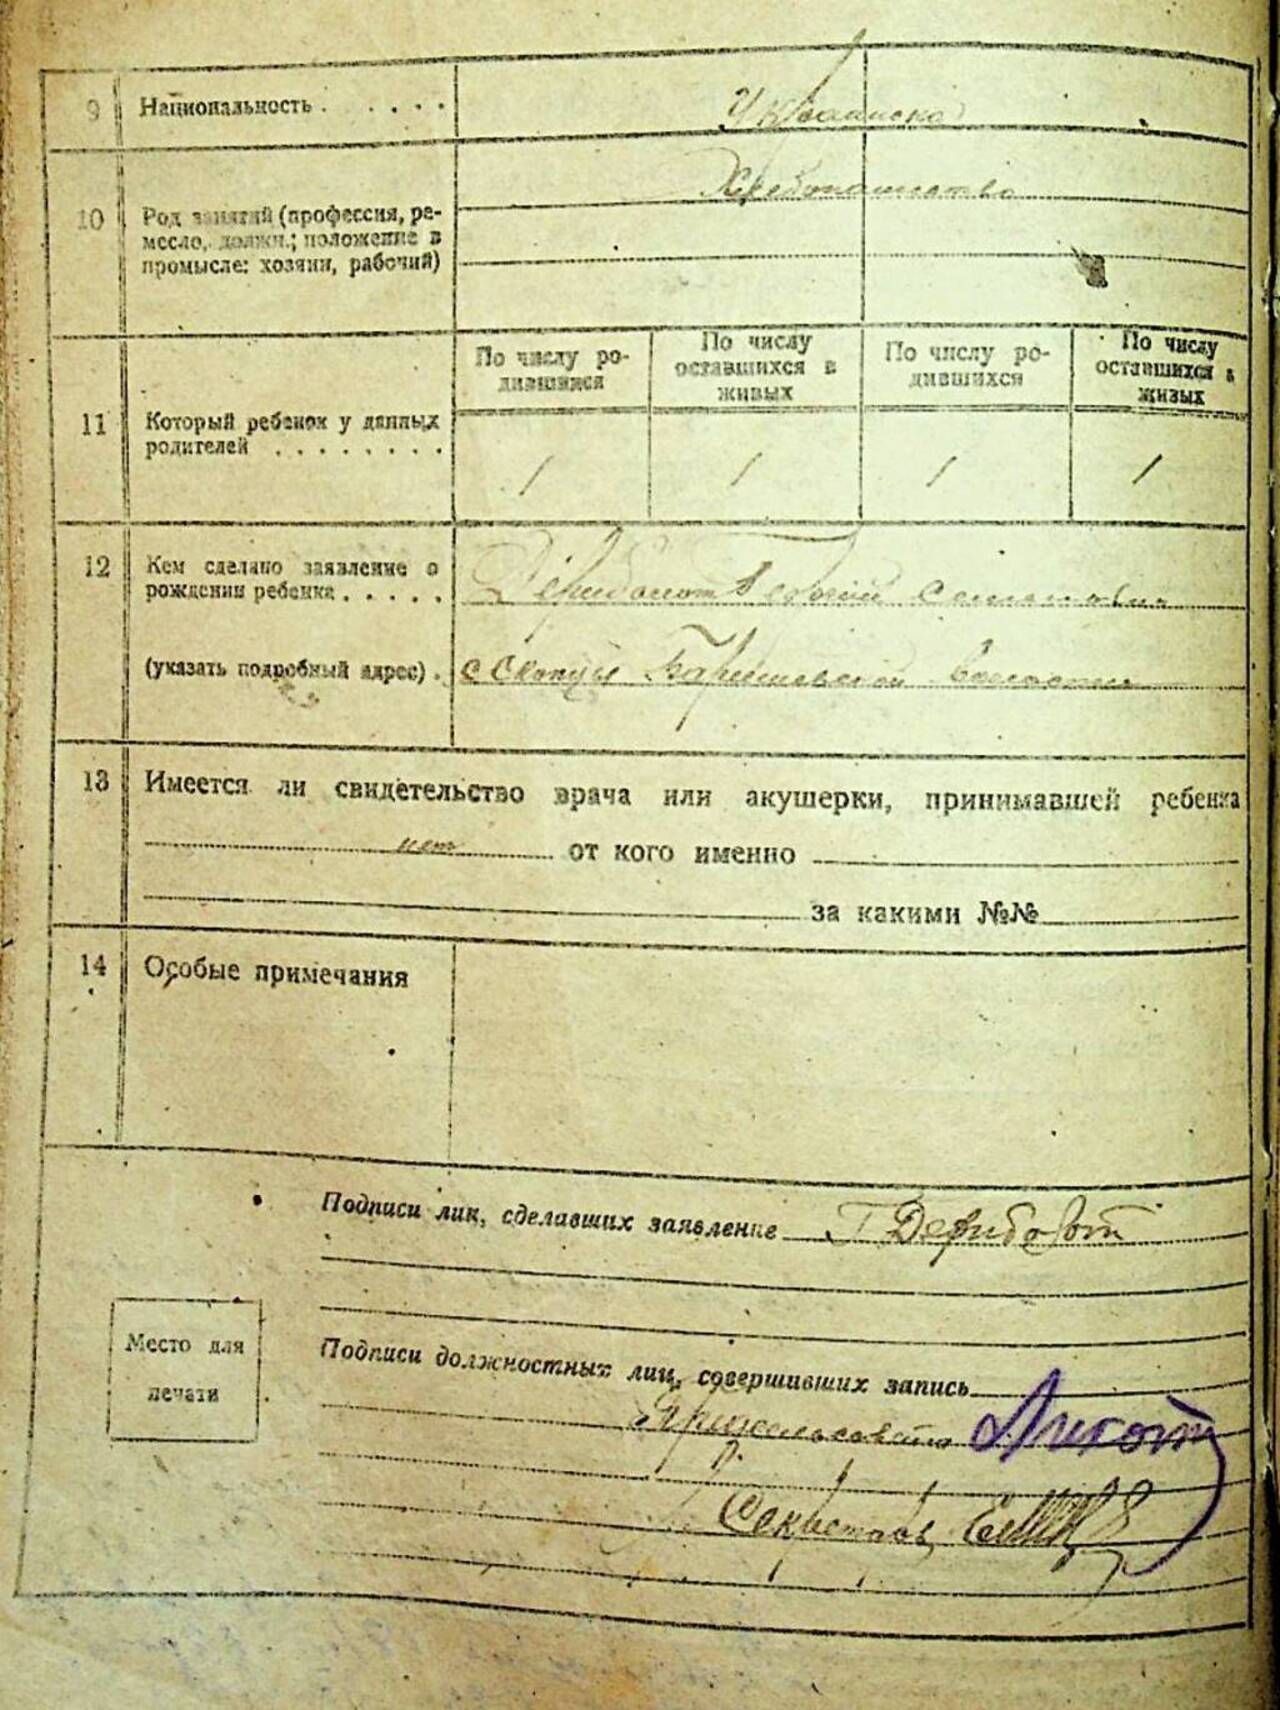 9 Национальность . . . . .
Украинска
10 Род занятий (профессия, ре-
месло, должн.; положение в
промысле: хозяин, рабочий)
Хлебопашество
11 Который ребенок у данных
родителей . . . . . . . .
По числу ро-
дившихся
По числу
оставшихся в
живых
По числу ро-
дившихся
По числу
оставшихся в
живых
1 1 1 1
12 Кем сделано заявление о
рождении ребенка . . . . .
Дериболот Георгий Семенович
(указать подробный адрес) .
с Скопцы Баришевской волости
13 Имеется ли свидетельство врача или акушерки, принимавшей ребенка
нет от кого именно
за какими №№
14 Особые примечания
Подписи лиц, сделавших заявление Г Дериболот
Место для
печати
Подписи должностных лиц, совершивших запись
Секретарь